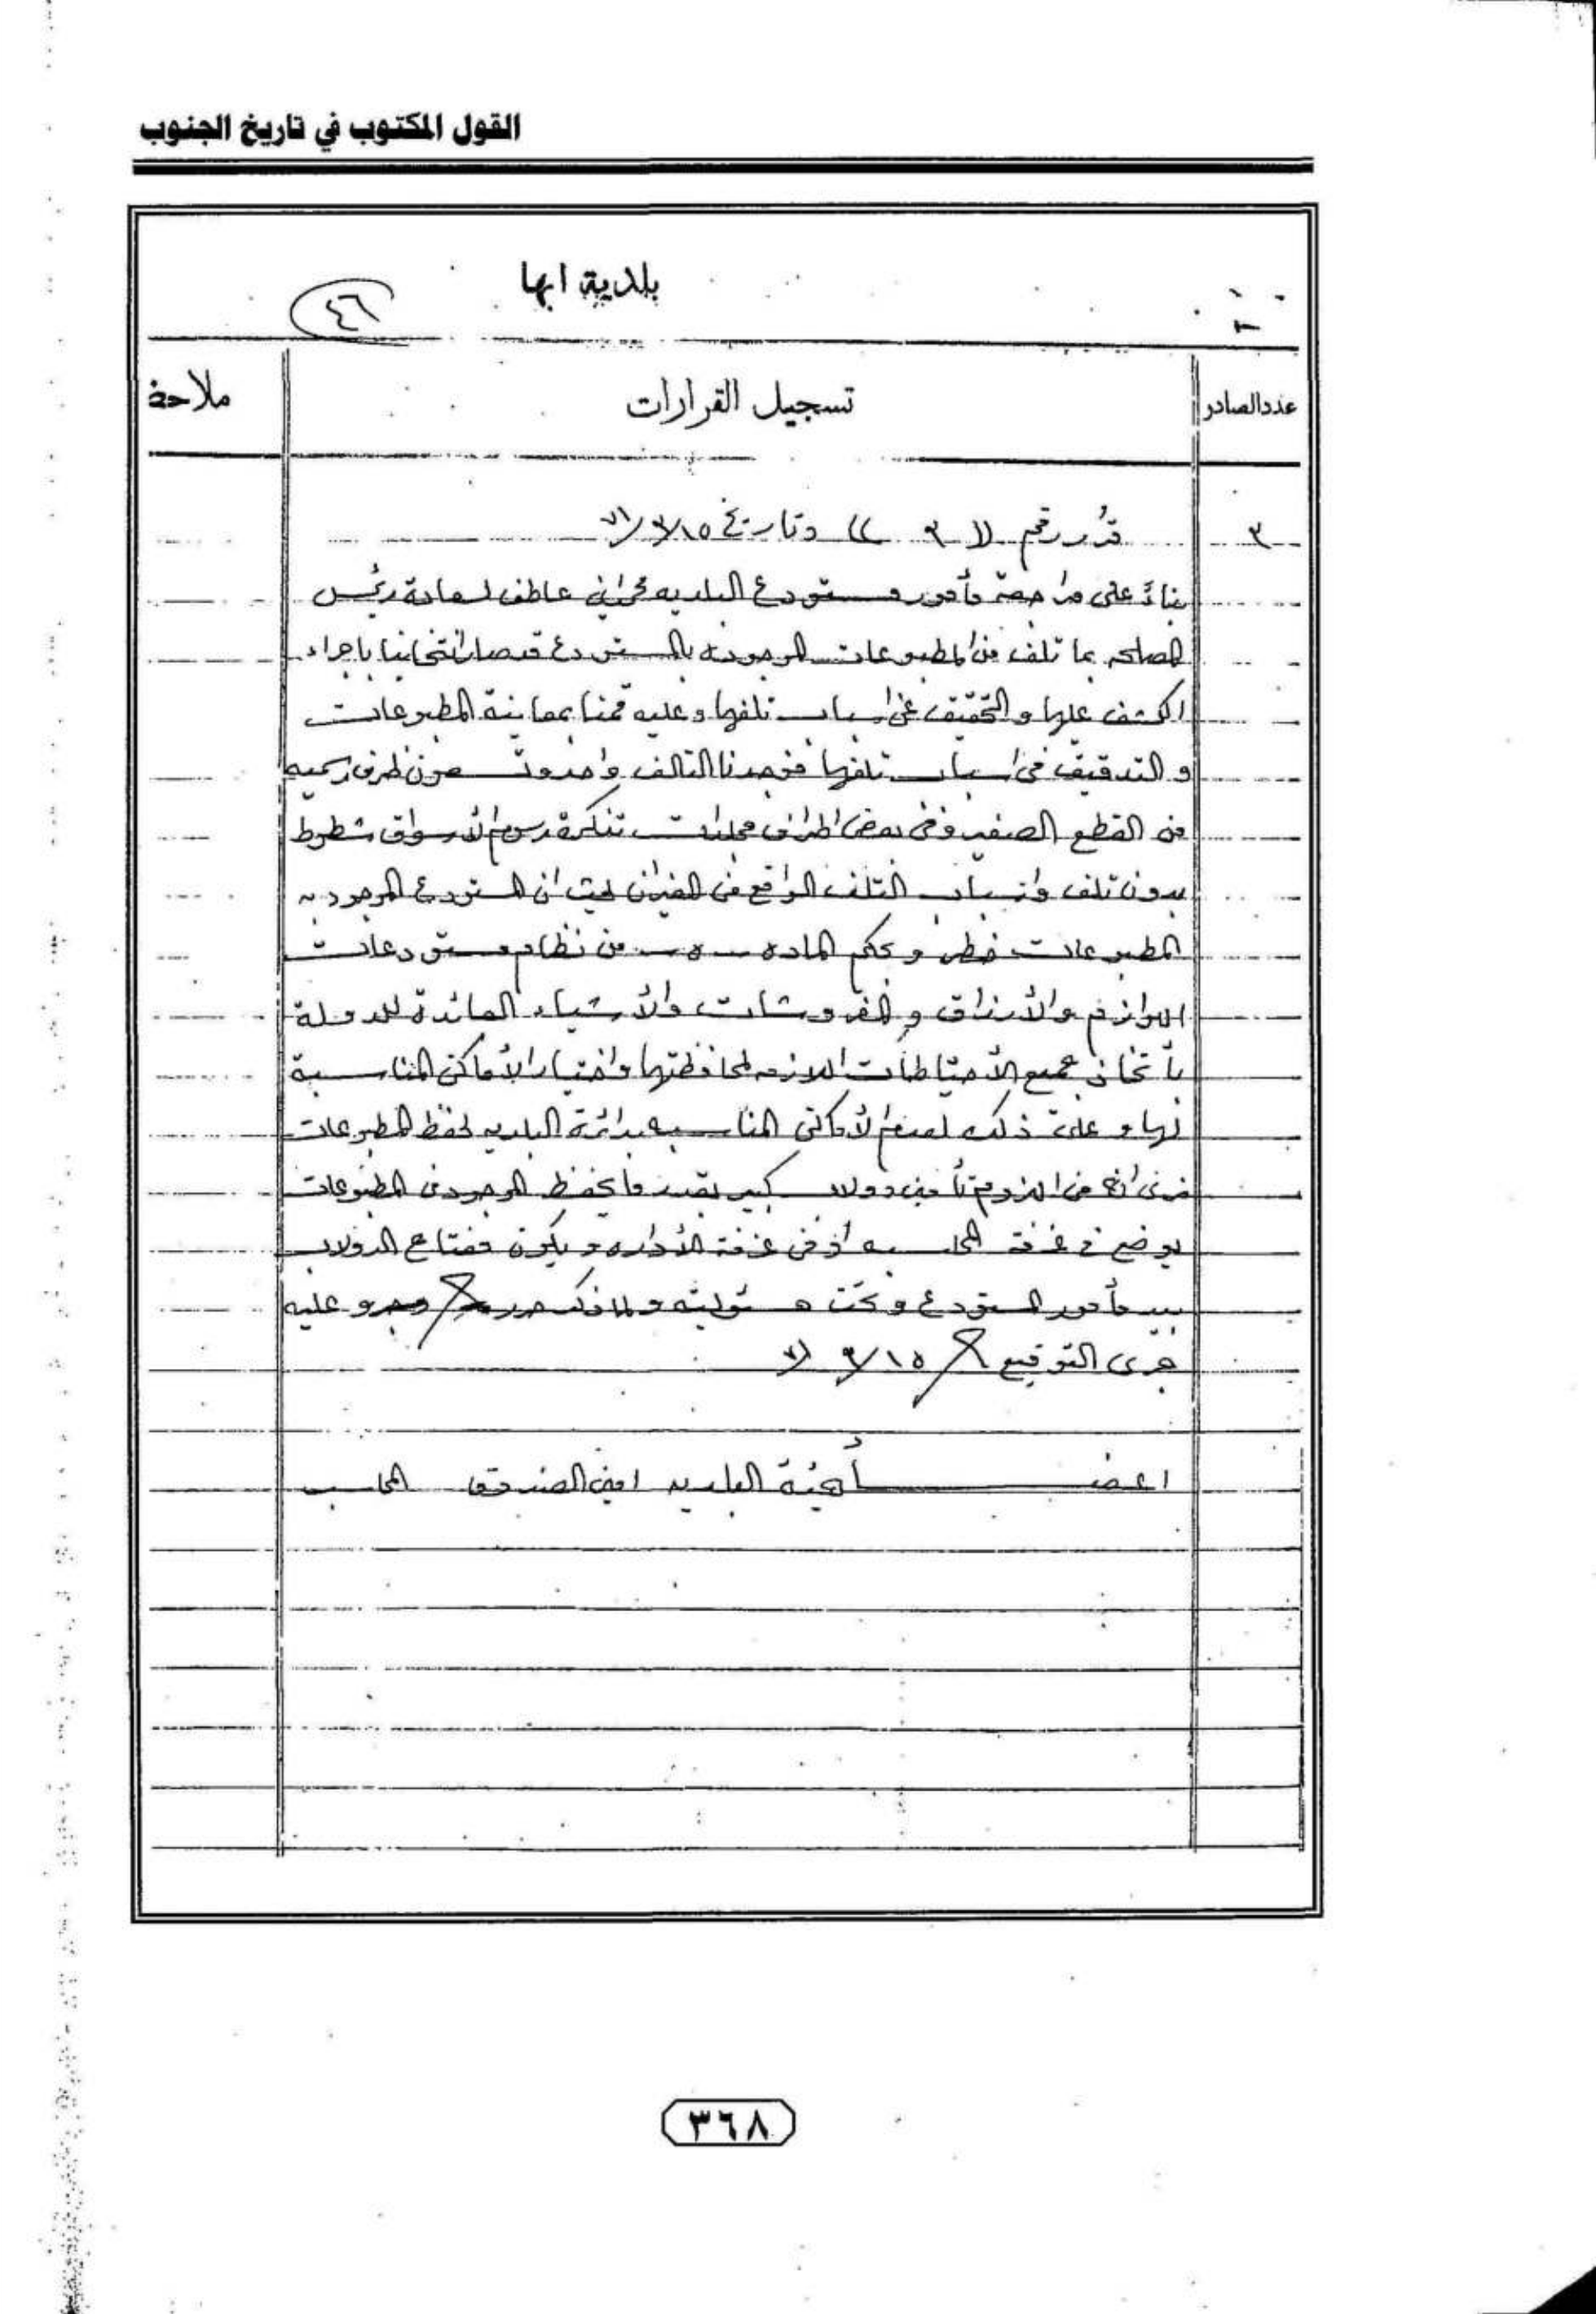 القول المكتوب في تاريخ الجنوب
بلدية ابها
٤٦
عدد الصادر
تسجيل القرارات
ملاحظ
٣
قرار رقم (( ٣ )) وتاريخ ٧١/٣/١٥
بناءً على مراجعة مأمور مستودع البلديه عاطف لسعادة رئيس
المصلحه بما تلف من المطبوعات الموجوده بالمستودع فصار انتخابنا باجراء
الكشف عليها والتحقيق عن اسباب تلفها وعليه قمنا بمعاينة المطبوعات
والتدقيق في اسباب تلفها فوجدنا التالف واحد وتسعون ظرف رسميه
من القطع الصغير وفي بعض اطراف مجلدات تذكرة رسوم الأسواق شطوط
بدون تلف واسباب التلف الواقع من الفيران بحيث ان المستودع الموجود به
المطبوعات خطر وبحكم الماده -٥- من نظام مستودعات
اللوازم والأرزاق والمفروشات والأشياء العائدة للدولة
بأتخاذ جميع الأحتياطات اللازمه لمحافظتها واختيار الأماكن المناسبة
لها وعلى ذلك لعدم الأماكن المناسبه بدائرة البلديه لحفظ المطبوعات
نرى انه من اللزوم تأمين دولاب كبير بقدر ما يحفظ الموجود من المطبوعات
يوضع في غرفة المحاسبه او في غرفة الأداره ويكون مفتاح الدولاب
بيد مأمور المستودع وتحت مسئوليته ولما ذكر حرر وعليه
جرى التوقيع ٧١/٣/١٥
اعضاء هيئة البلديه امين الصندوق المحاسب
٣٦٨